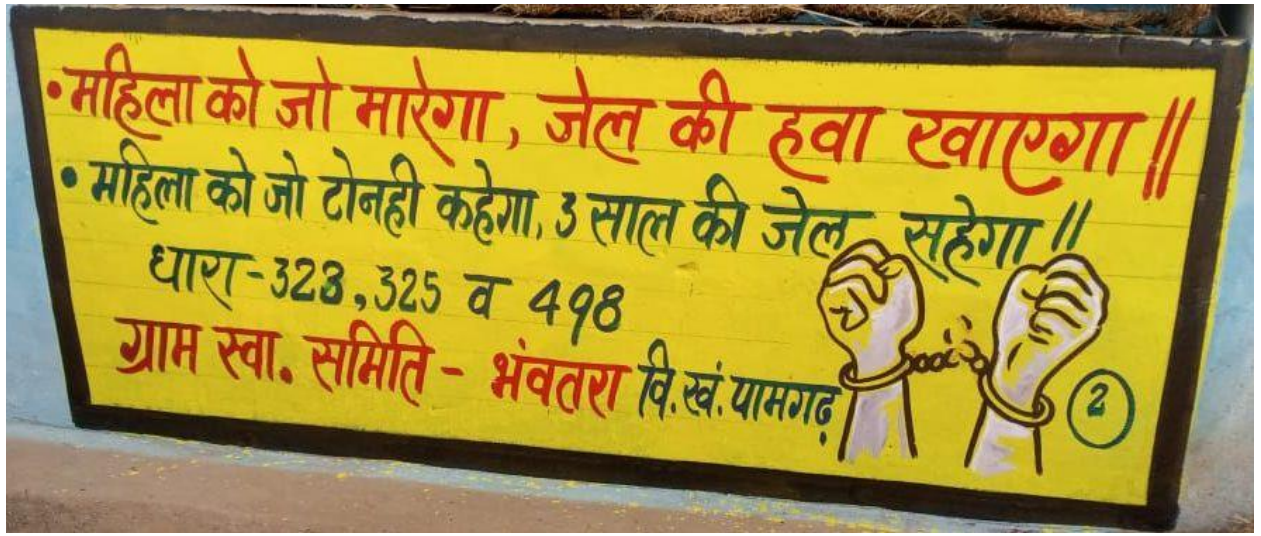 • महिला को जो मारेगा, जेल की हवा खाएगा॥
• महिला को जो टोनही कहेगा, 3 साल की जेल सहेगा॥
धारा-323, 325 व 498
ग्राम स्वा. समिति - भंवतरा वि.खं. पामगढ़
2